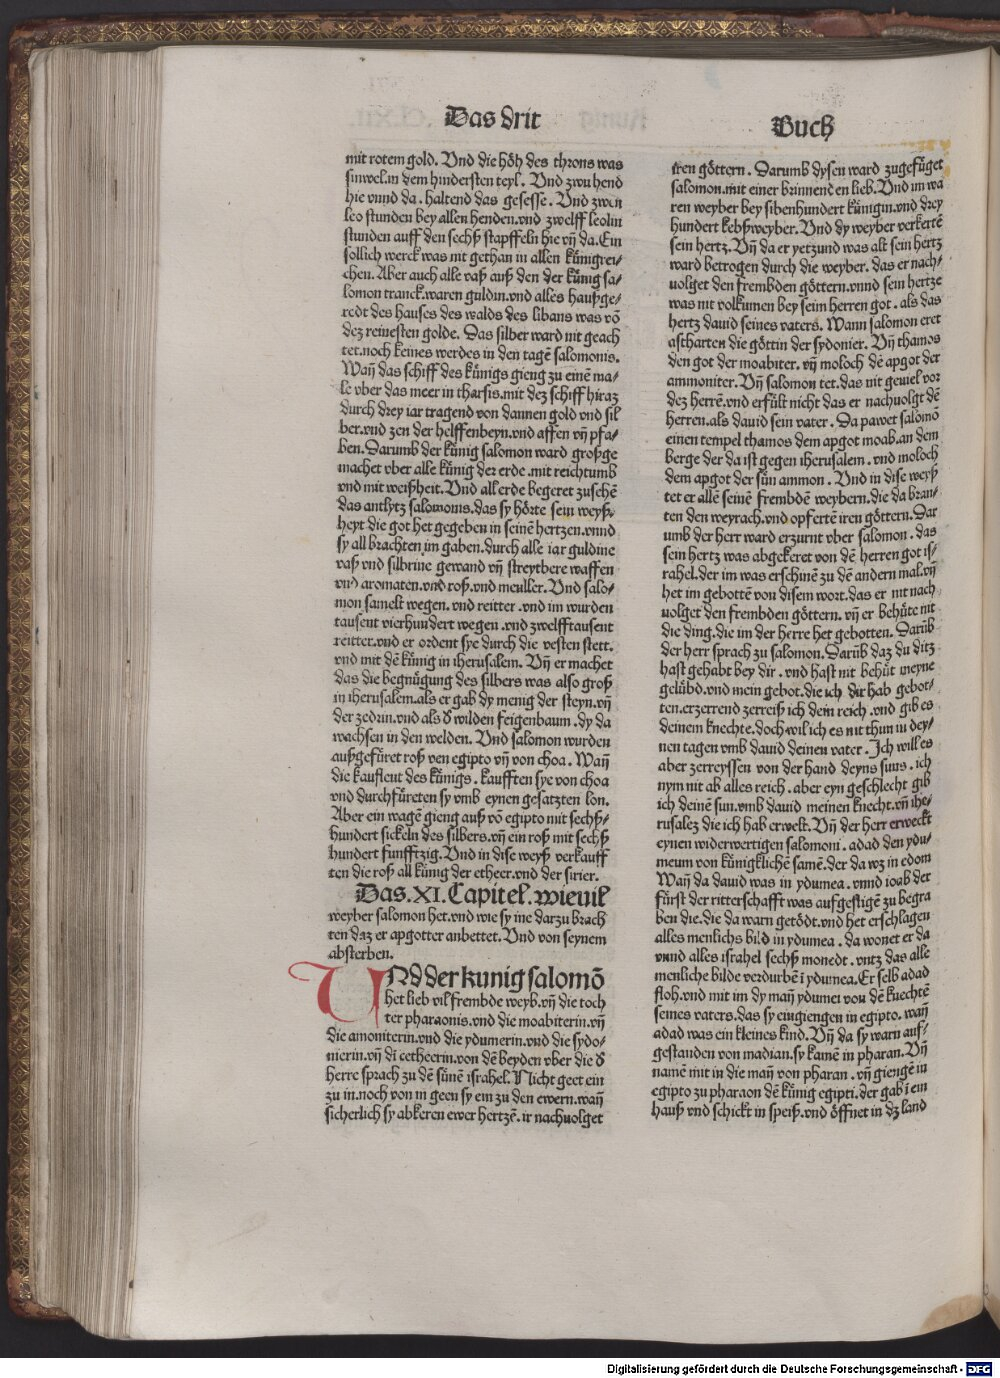 Das drit
Buch
mit rotem gold. Vnd die höh des throns was
sinwel.in dem hindersten teyl. Vnd zwu hend
hie vnnd da. haltend das gesesse. Vnd zwen
leo stunden bey allen henden.vnd zwelff leolin
stunden auff den sechß stapffeln hie vñ da. Ein
söllich werck was nit gethan in allen künigrei⸗
chen. Aber auch alle vaß auß den der künig sa⸗
lomon tranck.waren guldin.vnd alles haußge⸗
redt des hauses des walds des libans was võ
dez reinesten golde. Das silber ward nit geach
tet.noch keines werdes in den tagẽ salomonis.
Wañ das schiff des künigs gieng zu einẽ ma⸗
le vber das meer in tharsis.mit dez schiff hiraz
durch drey iar tragend von dannen gold vnd sil
ber.vnd zen der helffenbeyn.vnd affen vñ pfa⸗
ben. Darumb der künig salomon ward großge
machet vber alle künig der erde.mit reichtumb
vnd mit weißheit. Vnd all erde begeret zusehẽ
das antlytz salomonis.das sy hörte sein weyß⸗
heyt die got het gegeben in seinẽ hertzen.vnnd
sy all brachten im gaben.durch alle iar guldine
vaß vnd silbrine gewand vñ streytbere waffen
vnd aromaten.vnd roß.vnd meuller. Vnd salo⸗
mon samelt wegen. vnd reitter. vnd im wurden
tausent vierhundert wegen. vnd zwelfftausent
reitter.vnd er ordent sye durch die vesten stett.
vnd mit dẽ künig in iherusalem. Vñ er machet
das die begnügung des silbers was also groß
in iherusalem.als er gab dy menig der steyn.vñ
der zedrin.vnd als d wilden feigenbaum. dy da
wachsen in den welden. Vnd salomon wurden
außgefüret roß ven egipto vñ von choa. Wañ
die kaufleut des künigs. kaufften sye von choa
vnd durchfüreten sy vmb eynen gesatzten lon.
Aber ein wagẽ gieng auß võ egipto mit sechß⸗
hundert sickeln des silbers.vñ ein roß mit sechß
hundert funfftzig. Vnd in dise weyß verkauff
ten die roß all künig der etheer.vnd der sirier.
Das. XI. Capitel. wieuil
weyber salomon het.vnd wie sy ine darzu brach
ten daz er apgotter anbettet. Vnd von seynem
absterben.
VNd der kunig salomõ
het lieb vil frembde weyb.vñ die toch
ter pharaonis.vnd die moabiterin.vñ
die amoniterin.vnd die ydumerin.vnd die sydo⸗
nierin.vñ dĩ cetheerin.von dẽ beyden vber die d
herre sprach zu dẽ sünẽ israhel. Nicht geet ein
zu in.noch von in geen sy ein zu den ewern.wañ
sicherlich sy abkeren ewer hertzẽ. ir nachuolget
iren göttern. Darumb dysen ward zugefüget
salomon.mit einer brinnenden lieb. Vnd im wa
ren weyber bey sibenhundert künigin.vnd drey
hundert kebßweyber. Vnd dy weyber verkertẽ
sein hertz. Vñ da er yetzund was alt sein hertz
ward betrogen durch die weyber. das er nach⸗
uolget den frembden göttern.vnnd sein hertze
was nit volkumen bey seim herren got. als das
hertz dauid seines vaters. Wann salomon eret
astharten die göttin der sydonier. Vñ thamos
den got der moabiter. vñ moloch dẽ apgot der
ammoniter. Vñ salomon tet.das nit geuiel vor
dez herrẽ.vnd erfült nicht das er nachuolgt dẽ
herren.als dauid sein vater. Da pawet salomõ
einen tempel thamos dem apgot moab.an dem
berge der da ist gegen iherusalem. vnd moloch
dem apgot der sün ammon. Vnd in dise weyß
tet er allẽ seinẽ frembdẽ weybern.die da bran⸗
ten den weyrach.vnd opfertẽ iren göttern. Dar
umb der herr ward erzurnt vber salomon. das
sein hertz was abgekeret von dẽ herren got is⸗
rahel.der im was erschinẽ zu dẽ andern mal.vñ
het im gebottẽ von disem wort.das er nit nach
uolget den frembden göttern. vñ er behüte nit
die ding.die im der herre het gebotten. Darũb
der herr sprach zu salomon. Darũb daz du ditz
hast gehabt bey dir. vnd hast nit behüt meyne
gelübd.vnd mein gebot.die ich dir hab gebot⸗
ten.erzerrend zerreiß ich dein reich. vnd gib es
deinem knechte.doch wil ich es nit thun in dey⸗
nen tagen vmb dauid deinen vater. Ich will es
aber zerreyssen von der hand deyns suns. ich
nym nit ab alles reich. aber eyn geschlecht gib
ich deinẽ sun.vmb dauid meinen knecht.vñ ihe⸗
rusalez die ich hab erwelt. Vñ der herr erweckt
eynen widerwertigen salomoni. adad den ydu⸗
meum von künigklichẽ samẽ.der da wz in edom
Wañ da dauid was in ydumea. vnnd ioab der
fürst der ritterschafft was aufgestigẽ zu begra
ben die.die da warn getödt.vnd het erschlagen
alles menlichs bild in ydumea. da wonet er da
vnnd alles israhel sechß monedt. vntz das alle
menliche bilde verdurbẽ ĩ ydumea. Er selb adad
floh.vnd mit im dy mañ ydumei von dẽ knechtẽ
seines vaters.das sy eingiengen in egipto. wañ
adad was ein kleines kind. Vñ da sy warn auf⸗
gestanden von madian.sy kamẽ in pharan. Vñ
namẽ mit in die mañ von pharan. vñ giengẽ in
egipto zu pharaon dẽ künig egipti.der gab ĩ ein
hauß vnd schickt in speiß.vnd öffnet in dz land
Digitalisierung gefördert durch die Deutsche Forschungsgemeinschaft - DFG